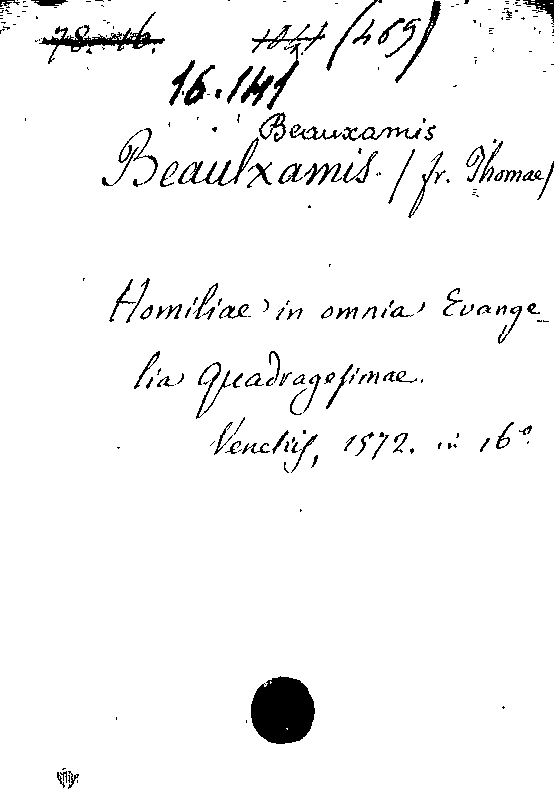 78. 16. (469)
16.141
Beauxamis
Beaulxamis. / fr. Thomae/
Homiliae in omnia Evange_
lia Quadragesimae.
Venetiis, 1572. in 16°